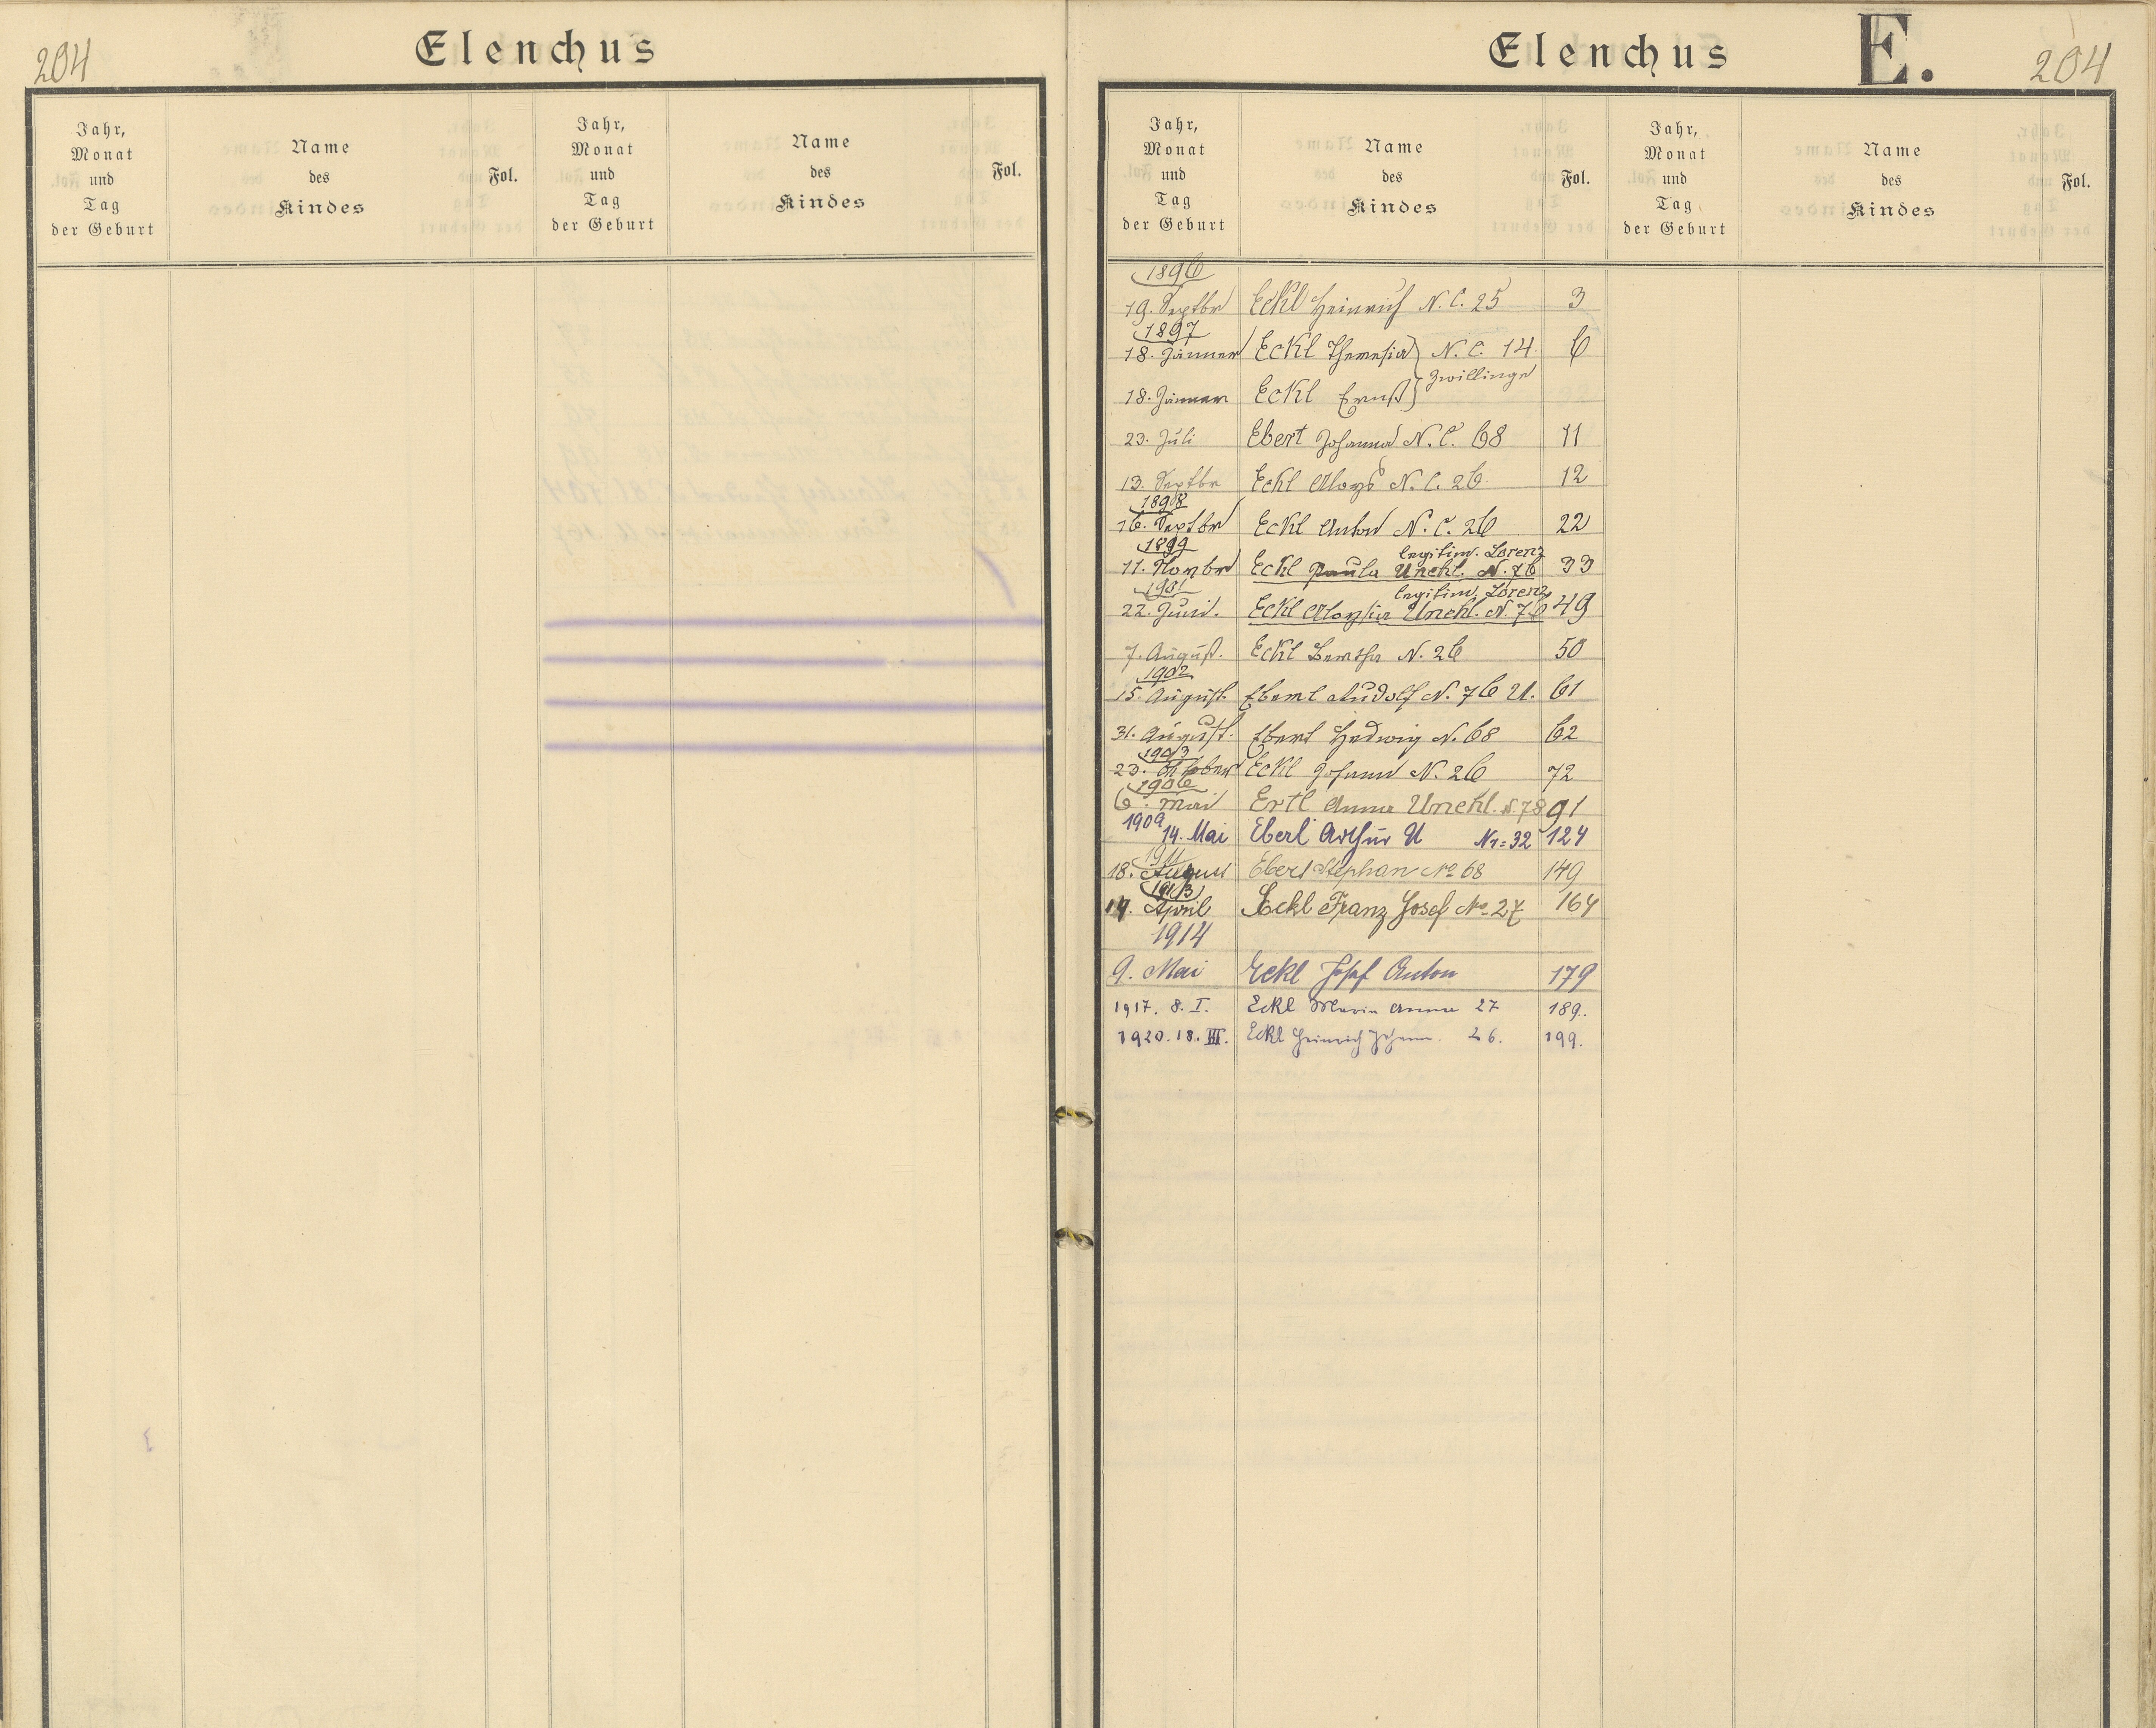 204
Elenchus
Jahr,
Monat
und
Tag
der Geburt
Name
des
Kindes
Fol.
Jahr,
Monat
und
Tag
der Geburt
Name
des
Kindes
Fol.
Elenchus E. 204
Jahr,
Monat
und
Tag
der Geburt
Name
des
Kindes
Fol.
Jahr,
Monat
und
Tag
der Geburt
Name
des
Kindes
Fol.
1896
19. Septbr Eckl Heinrich N. C. 25 3
1897
18. Jänner Eckl Theresia N. C. 14. 6
Zwillinge
18. Jänner Eckl Ernst
23. Juli Ebert Johanna N. C. 68 11
13. Septbr Eckl Aloys N. C. 26. 12
1898
16. Septbr Eckl Anton N. C. 26 22
1899 legitim. Lorenz
11. Novbr Eckl Paula Unehl. N. 76 33
1901 legitim. Lorenz
22. Juni. Eckl Aloysia Unehl. N. 76 49
7. August. Eckl Bertha N. 26 50
1902
15. August. Eberl Rudolf N. 76 U. 61
31. August. Ebert Hedwig N. 68 62
1903
23. Oktober Eckl Johann N. 26 72
1906
6. Mai Ertl Anna Unehl. N. 78 91
1909
14. Mai Eberl Arthur U Nr= 32 124
1911
18. August Ebert Stephan No 68 149
1913
14. April Eckl Franz Josef No 27 164
1914
9. Mai Eckl Josef Anton 179
1917. 8. I. Eckl Maria Anna 27 189.
1920. 18. III. Eckl Heinrich Johann. 26. 199.